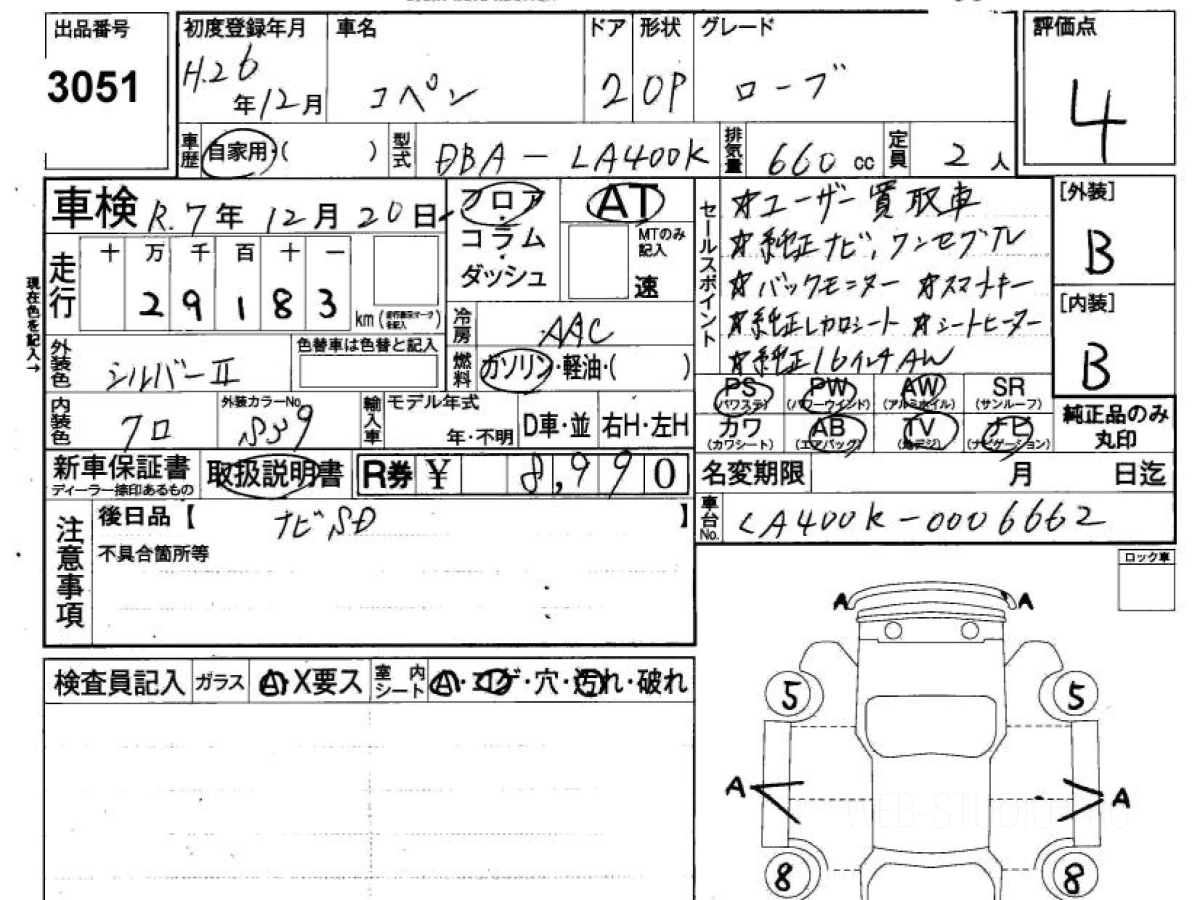 出品番号 初度登録年月 車名 ドア 形状 グレード 評価点
3051 H.26年12月 コペン 2 OP ローブ 4
車歴 自家用・( ) 型式 DBA-LA400K 排気量 660cc 定員 2人
車検 R.7年12月20日 フロア AT セールスポイント ☆ユーザー買取車 [外装]
コラム MTのみ記入 ☆純正ナビ,ワンセグTV B
ダッシュ 速
走行 十 万 千 百 十 一 ☆バックモニター ☆スマートキー [内装]
29183 km (走行表示マークを記入) 冷房 AAC ☆純正レカロシート ☆シートヒーター
現在色を記入→
外装色 シルバーII 色替車は色替と記入 燃料 ガソリン・軽油・( ) ☆純正16インチAW B
PS (パワステ) PW (パワーウインド) AW (アルミホイル) SR (サンルーフ)
内装色 クロ 外装カラーNo. S39 輸入車 モデル年式 年・不明 D車・並 右H・左H カワ (カワシート) AB (エアバッグ) TV (地デジ) ナビ (ナビゲーション) 純正品のみ丸印
新車保証書 ディーラー捺印あるもの 取扱説明書 R券 ¥ 8,990 名変期限 月 日迄
注意事項 後日品【 ナビSD 】 車台No. LA400K-0006662
不具合箇所等 ロック車
A A
検査員記入 ガラス A・X要ス 室内シート A・コゲ・穴・汚れ・破れ 5 5
A A
WEB-STUDIO
8 8